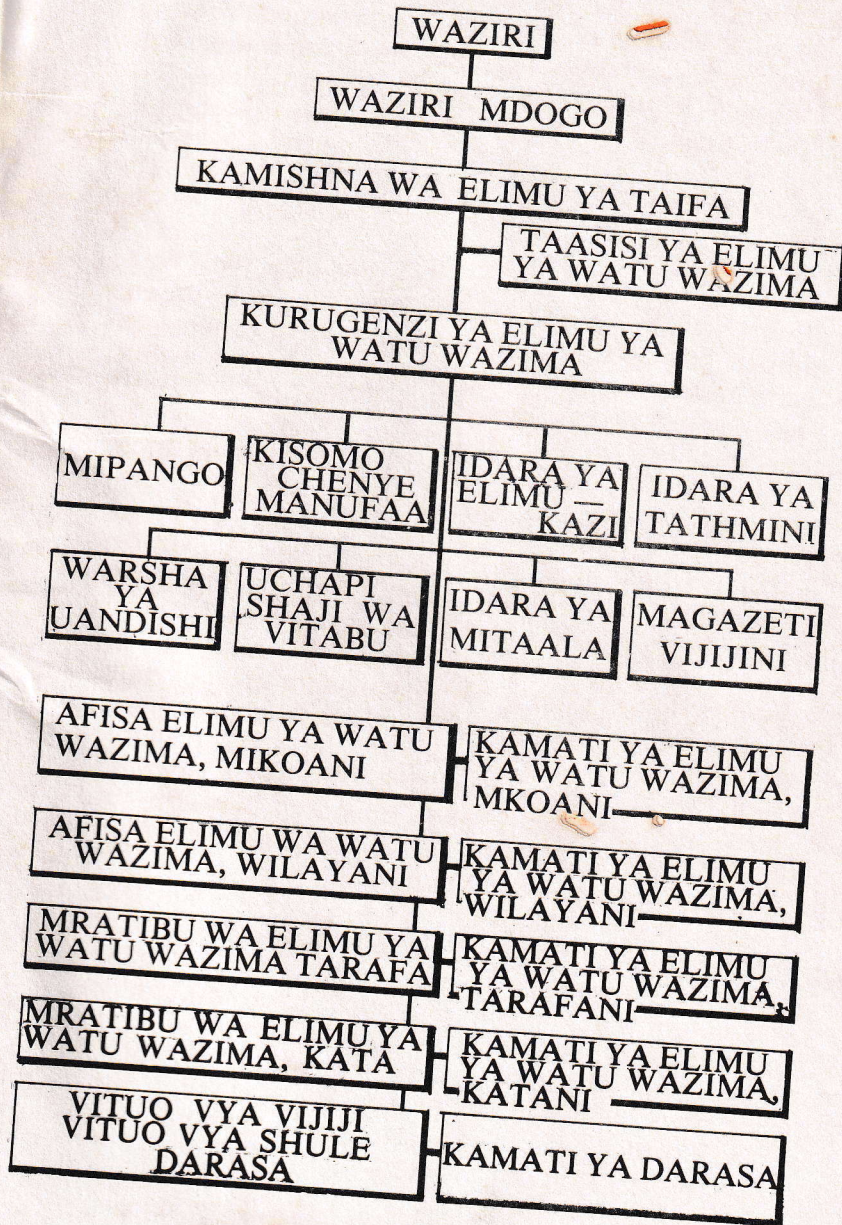 WAZIRI
WAZIRI MDOGO
KAMISHNA WA ELIMU YA TAIFA
TAASISI YA ELIMU
YA WATU WAZIMA
KURUGENZI YA ELIMU YA
WATU WAZIMA
MIPANGO
KISOMO
CHENYE
MANUFAA
IDARA YA
ELIMU —
KAZI
IDARA YA
TATHMINI
WARSHA
YA
UANDISHI
UCHAPI
SHAJI WA
VITABU
IDARA YA
MITAALA
MAGAZETI
VIJIJINI
AFISA ELIMU YA WATU
WAZIMA, MIKOANI
KAMATI YA ELIMU
YA WATU WAZIMA,
MKOANI
AFISA ELIMU WA WATU
WAZIMA, WILAYANI
KAMATI YA ELIMU
YA WATU WAZIMA,
WILAYANI
MRATIBU WA ELIMU YA
WATU WAZIMA TARAFA
KAMATI YA ELIMU
YA WATU WAZIMA,
TARAFANI
MRATIBU WA ELIMU YA
WATU WAZIMA, KATA
KAMATI YA ELIMU
YA WATU WAZIMA,
KATANI
VITUO VYA VIJIJI
VITUO VYA SHULE
DARASA
KAMATI YA DARASA